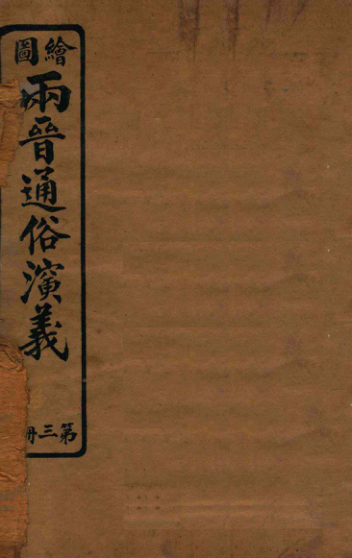 繪圖
兩晉通俗演義
第三冊